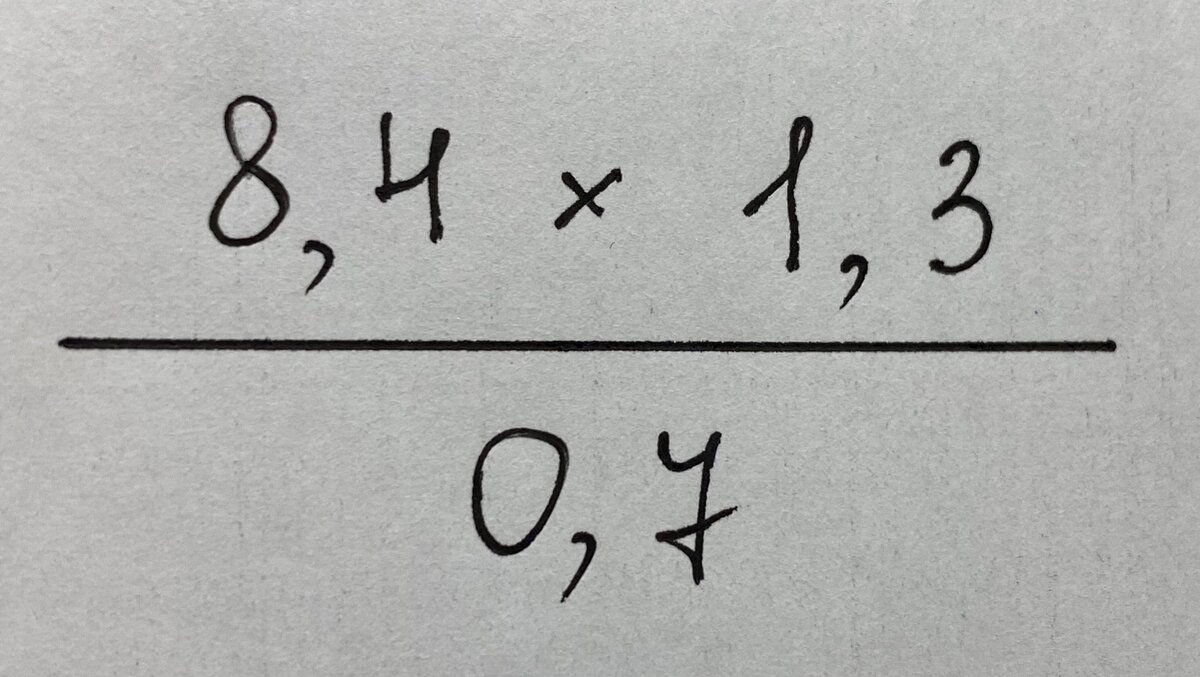 8,4 × 1,3
0,7